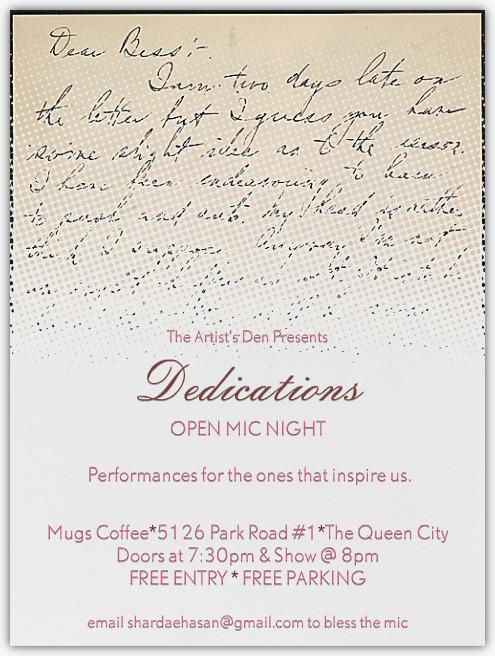 Dear Bess:-
I am two days late on
the letter but I guess you have
some slight idea as to the
I have been endeavoring to learn
to and My head is rather
thick I suppose. Anyway I'm not
an
The Artist's Den Presents
Dedications
OPEN MIC NIGHT
Performances for the ones that inspire us.
Mugs Coffee*5126 Park Road #1*The Queen City
Doors at 7:30pm & Show @ 8pm
FREE ENTRY * FREE PARKING
email shardaehasan@gmail.com to bless the mic